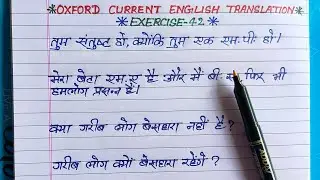 *OXFORD CURRENT ENGILISH TRANSLATION*
*EXERCISE-42*
तुम संतुष्ट हो, क्योंकि तुम एक एम.पी हो।
मेरा बेटा एम.ए है और मैं बी. फिर भी
हमलोग प्रसन्न हैं।
क्या गरीब लोग बेसहारा नहीं हैं?
गरीब लोग क्यों बेसहारा रहेंगे?